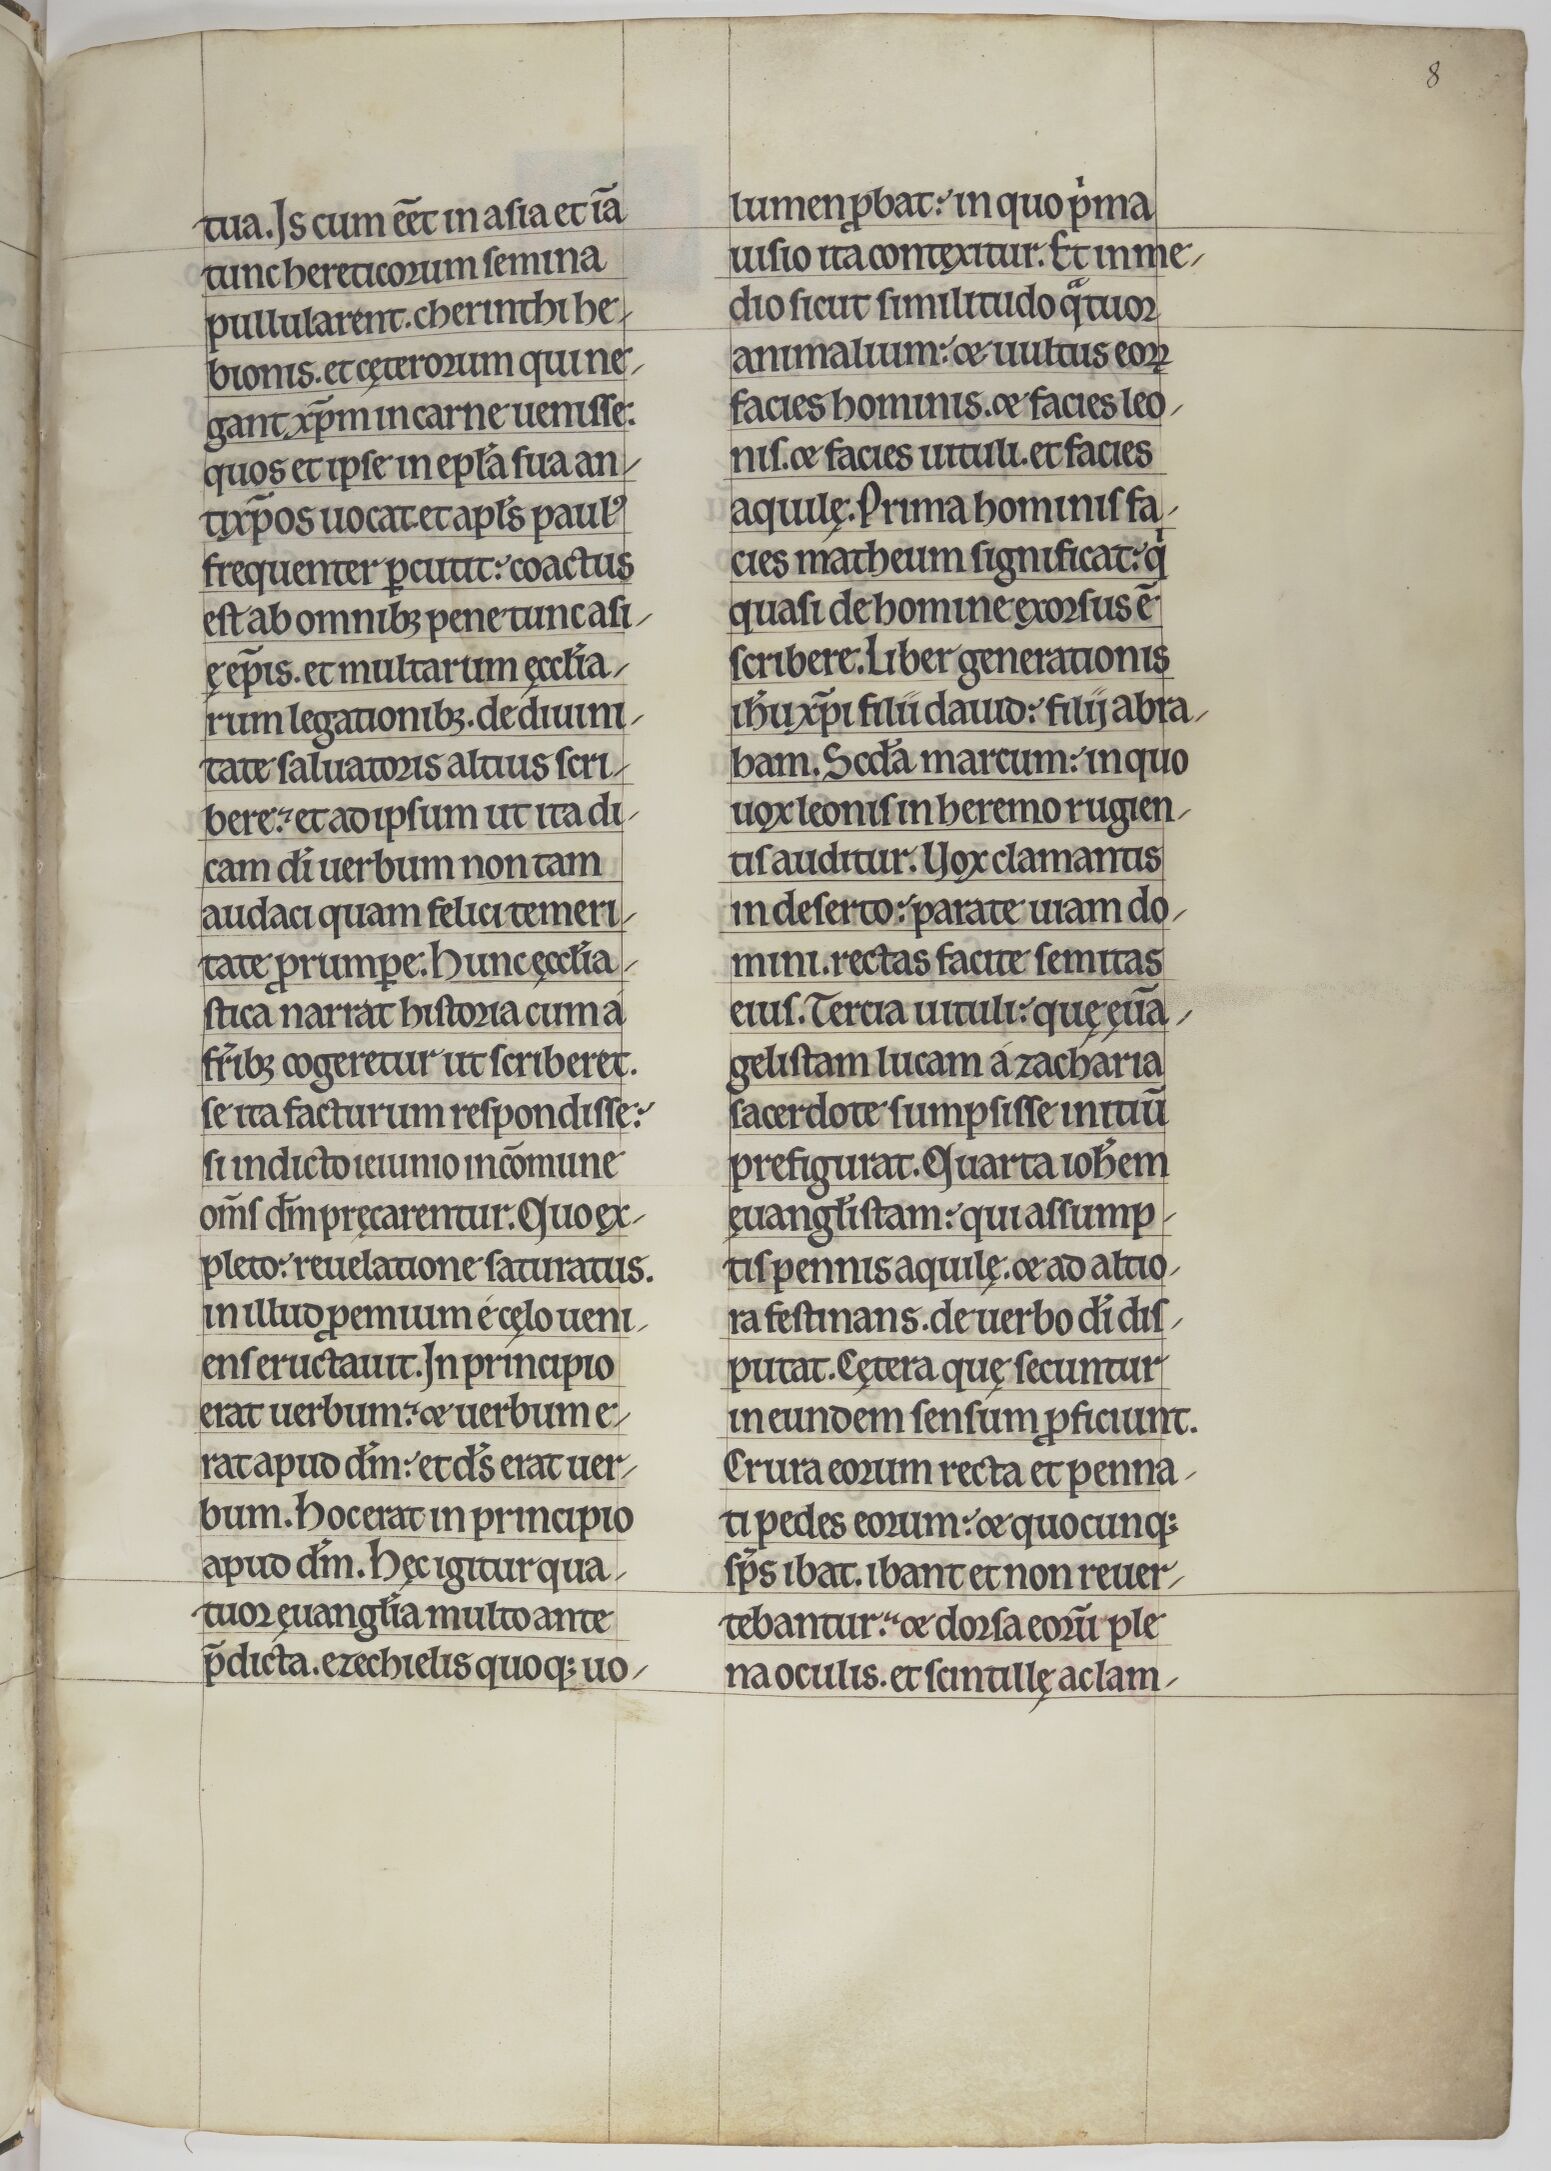 8
tua. Is cum eēt in asia et iā
tunc hereticorum semina
pullularent. cherinthi he-
bionis. et cęterorum qui ne-
gant xp̄m in carne uenisse:
quos et ipse in epľa sua an-
tixp̄os uocat. et apľs pauľꝰ
frequenter ꝑcutit: coactus
est ab omnibꝫ pene tunc asi-
ę ep̄is. et multarum ęccľia-
rum legationibꝫ. de diuini-
tate saluatoris altius scri-
bere: et ad ipsum ut ita di-
cam dı̄ uerbum non tam
audaci quam felici temeri-
tate ꝓrumꝑe. Hunc ęccľia-
stica narrat historia cum á
fr̄ibꝫ cogeretur ut scriberet.
se ita facturum respondisse:
si indicto ieiunio in cōmune
om̄s dm̄ pręcarentur. Quo ęx-
pleto: reuelatione saturatus.
in illud ꝓemium é cęlo ueni-
ens eructauit. In principio
erat uerbum: & uerbum e-
rat apud dm̄: et ds̄ erat uer-
bum. Hoc erat in principio
apud dm̄. Hęc igitur qua-
tuor ęuangľia multo ante
p̄dicta. ezechielis quoqꝫ uo-
lumen ꝓbat: in quo pͥma
uisio ita contęxitur. Et in me-
dio sicut similitudo qͣtuor
animalium: & uultus eoꝝ
facies hominis. & facies leo-
nis. & facies uituli. et facies
aquilę. Prima hominis fa-
cies matheum significat: qͥ
quasi de homine ęxorsus ē
scribere. Liber generationis
ih̄u xp̄i filii dauid: filij abra-
ham. Scďa marcum: in quo
uox leonis in heremo rugien-
tis auditur. Vox clamantis
in deserto: parate uiam do-
mini. rectas facite semitas
eius. Tercia uituli: quę ęuā-
gelistam lucam á zacharia
sacerdote sumpsisse initiū
prefigurat. Quarta ioh̄em
ęuangľistam: qui assump-
tis pennis aquilę. & ad altio-
ra festinans. de uerbo dı̄ dis-
putat. Cętera quę secuntur
in eundem sensum ꝓficiunt.
Crura eorum recta et penna-
ti pedes eorum: & quocunqꝫ
sp̄s ibat. ibant et non reuer-
tebantur: & dorsa eorū ple
na oculis. et scintillę ac lam-